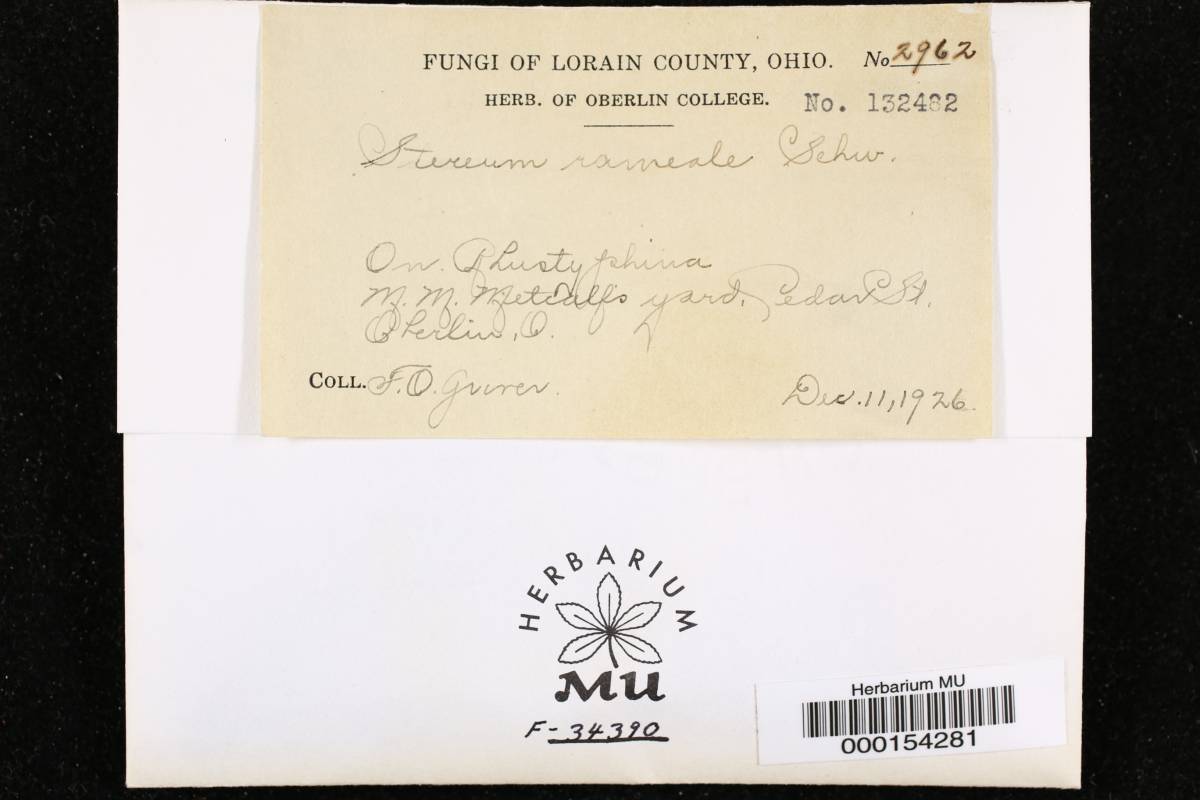 FUNGI OF LORAIN COUNTY, OHIO. No 2962
HERB. OF OBERLIN COLLEGE. No. 132482
Stereum rameale Schw.
On Rhus typhina
M. M. Metcalf's yard, Cedar St.
Oberlin, O.
COLL. F. O. Grover.
Dec. 11, 1926.
HERBARIUM
MU
F-34390
Herbarium MU
000154281